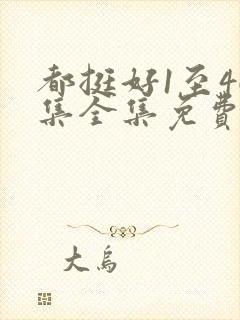 都挺好1至4
集全集免费
大乌